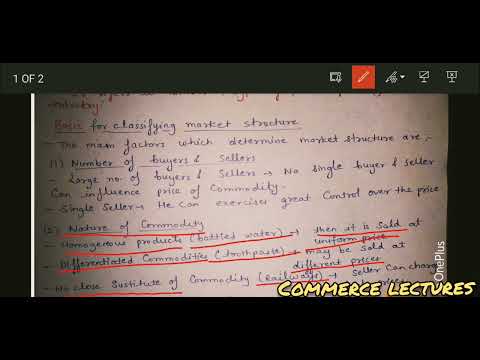 1 OF 2
industry.
Basis for classifying market structure
- The main factors which determine market structure are,-
(1) Number of buyers & Sellers
- Large no. of buyers & Sellers → No single buyer & seller
Can influence price of Commodity.
- Single Seller → He Can exercises great Control over the price
(2) Nature of Commodity
- Homogenous products (bottled water) → then it is sold at
uniform price
- Differentiated Commodities (toothpaste) → may be sold at
different prices
- No close Sustitute of Commodity (Railways) → Seller Can charge
OnePlus
COMMERCE LECTURES